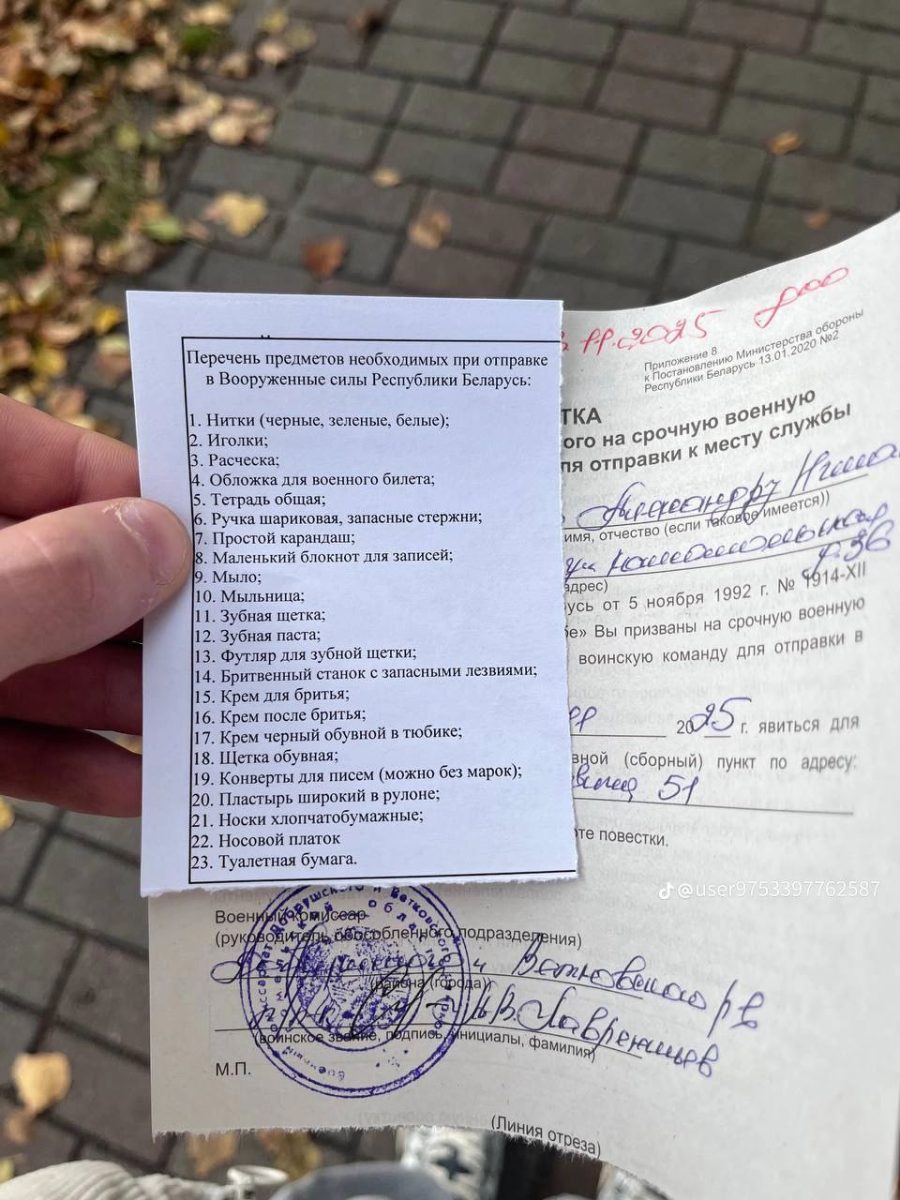 Перечень предметов необходимых при отправке
в Вооруженные силы Республики Беларусь:
1. Нитки (черные, зеленые, белые);
2. Иголки;
3. Расческа;
4. Обложка для военного билета;
5. Тетрадь общая;
6. Ручка шариковая, запасные стержни;
7. Простой карандаш;
8. Маленький блокнот для записей;
9. Мыло;
10. Мыльница;
11. Зубная щетка;
12. Зубная паста;
13. Футляр для зубной щетки;
14. Бритвенный станок с запасными лезвиями;
15. Крем для бритья;
16. Крем после бритья;
17. Крем черный обувной в тюбике;
18. Щетка обувная;
19. Конверты для писем (можно без марок);
20. Пластырь широкий в рулоне;
21. Носки хлопчатобумажные;
22. Носовой платок
23. Туалетная бумага.
11.2025
Приложение 8
к Постановлению Министерства обороны
Республики Беларусь 13.01.2020 №2
ТКА
ого на срочную военную
ля отправки к месту службы
Александру
имя, отчество (если таковое имеется))
36
адрес)
усь от 5 ноября 1992 г. № 1914-XII
бе» Вы призваны на срочную военную
воинскую команду для отправки в
2025 г. явиться для
вной (сборный) пункт по адресу:
51
те повестки.
@user9753397762587
Военный комиссар
(руководитель обособленного подразделения)
и Ветковского
(района (города))
(воинское звание, подпись, инициалы, фамилия)
М.П.
(Линия отреза)